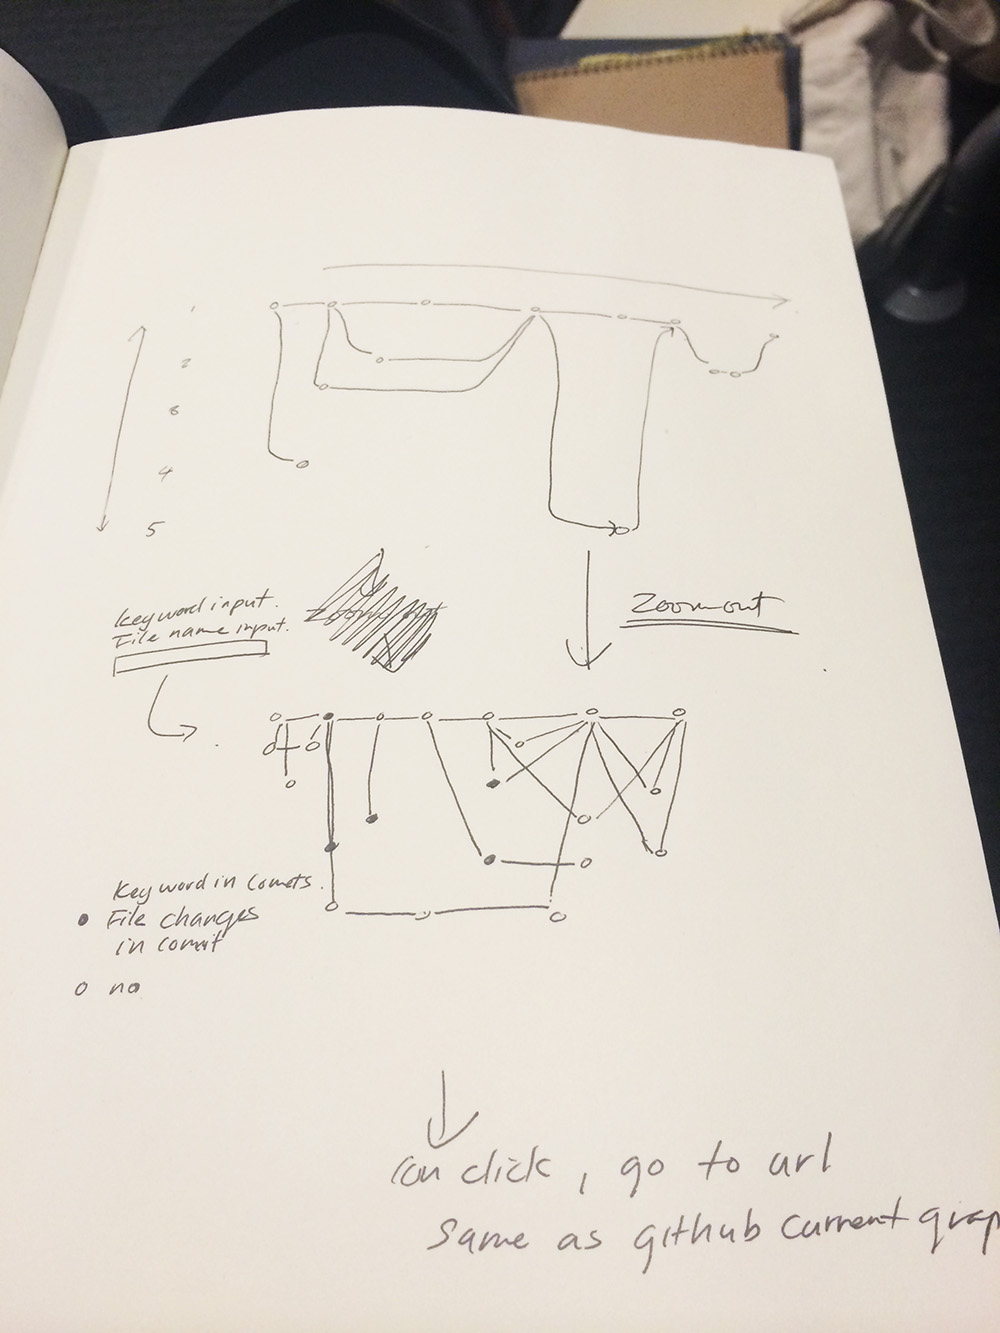 1
2
3
4
5
Keyword input.
File name input.
Zoom out
Zoom out
Keyword in Comets.
File changes
in comit
no
can click, go to url
same as github current grap